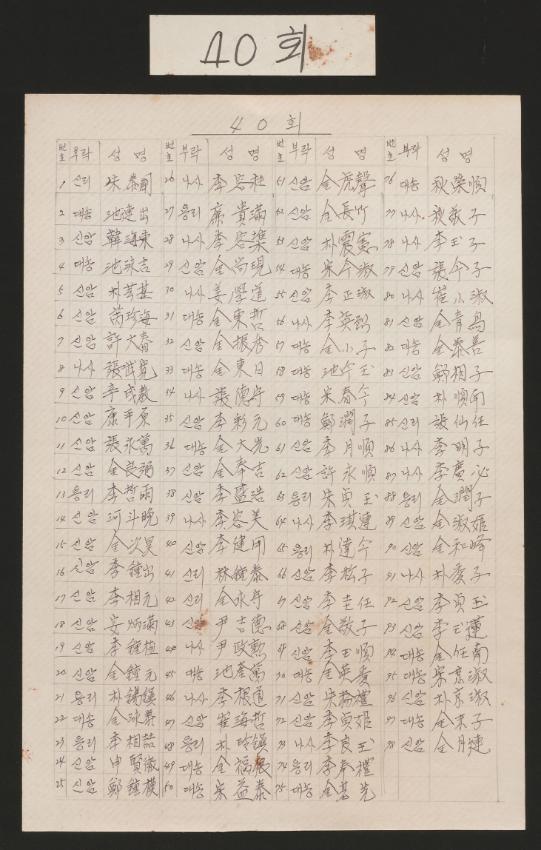 40회
40회
번호 부락 성명 번호 부락 성명 번호 부락 성명 번호 부락 성명
1 신리 朱泰圓 26 나사 李容和 51 신암 金虎聲 76 대농 秋粲順
2 대농 池達出 27 용리 廉貴滿 52 신암 金長竹 77 나사 敬子
3 신암 韓海東 28 나사 李容渠 53 신암 朴震憲 78 나사 李玉子
4 대농 池泳吉 29 신암 金尚現 54 대농 宋今淑 79 신암 張今子
5 신암 朴基 30 나사 姜學道 55 신암 李正淑 80 나사 崔小淑
6 신암 芮珍海 31 대농 金東哲 56 나사 李英烈 81 신암 金青烏
7 신암 許大春 32 신암 金振杏 57 대농 金小子 82 대농 金泰善
8 나사 張武寬 33 대농 金東日 58 대농 池今玉 83 신암 鄭相子
9 신암 辛成教 34 나사 張德守 59 나사 宋春今 84 신암 朴順南
10 신암 康平原 35 신암 李彩元 60 대농 鄭潤子 85 신리 張仙任
11 신암 張永萬 36 대농 金大光 61 신암 李月順 86 나사 李明子
12 신암 金良弼 37 신암 金泰吉 62 신암 許永順 87 나사 李廣必
13 용리 李哲雨 38 신암 李盛浩 63 용리 朱貞玉 88 용리 金潤子
14 신암 河斗晩 39 나사 李容美 64 나사 李琪連 89 신암 金淑姬
15 신암 金次昊 40 신암 李健用 65 용리 朴達今 90 신암 金和峰
16 신암 李鍾出 41 신리 林鍾泰 66 신암 李哲子 91 나사 朴愛子
17 신암 李相元 42 신리 金永守 67 신암 李圭任 92 신암 李貞玉
18 신암 安炳滿 43 신암 尹吉憲 68 신암 金敬子 93 신암 李玉蓮
19 신암 李鍾植 44 나사 尹政勳 69 신암 李玉順 94 대농 金任南
20 신암 金鍾元 45 대농 池奎萬 70 대농 金英秀 95 대농 宋京淑
21 용리 朴錫鎮 46 나사 李根道 71 신암 宋粉禮 96 신암 朴京淑
22 대농 金泳泰 47 신암 崔海哲 72 신암 李貞姬 97 대농 金末子
23 용리 李相喆 48 용리 朴玲鎮 73 나사 李良玉 98 신암 金月連
24 신암 申賢徹 49 대농 金福振 74 용리 李奉禮
25 신암 鄭鍾模 50 대농 宋益泰 75 대농 金基先